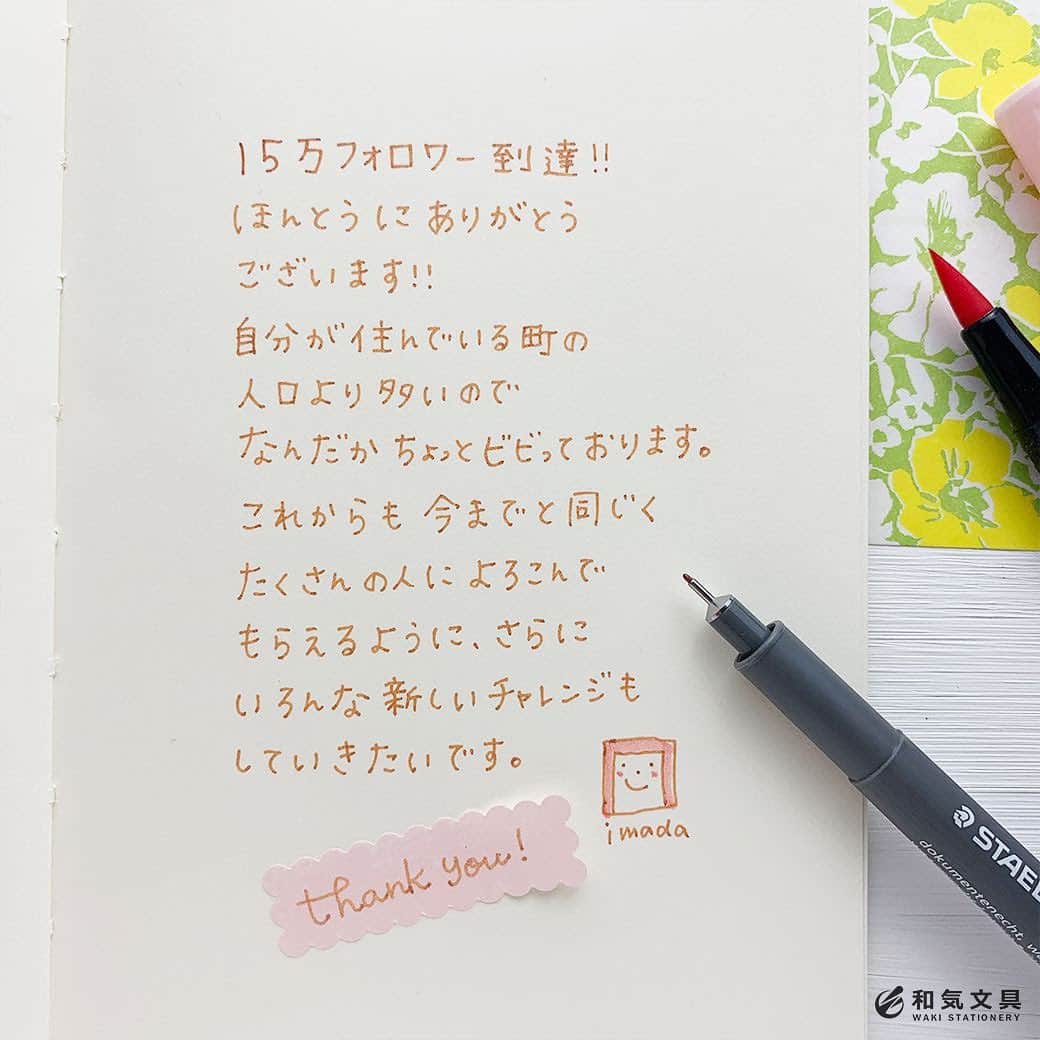 15万フォロワー到達!!
ほんとうにありがとう
ございます!!
自分が住んでいる町の
人口より多いので
なんだかちょっとビビっております。
これからも今までと同じく
たくさんの人によろこんで
もらえるように、さらに
いろんな新しいチャレンジも
していきたいです。
imada
thank you!
STAED
dokumentenecht, w
和気文具
WAKI STATIONERY